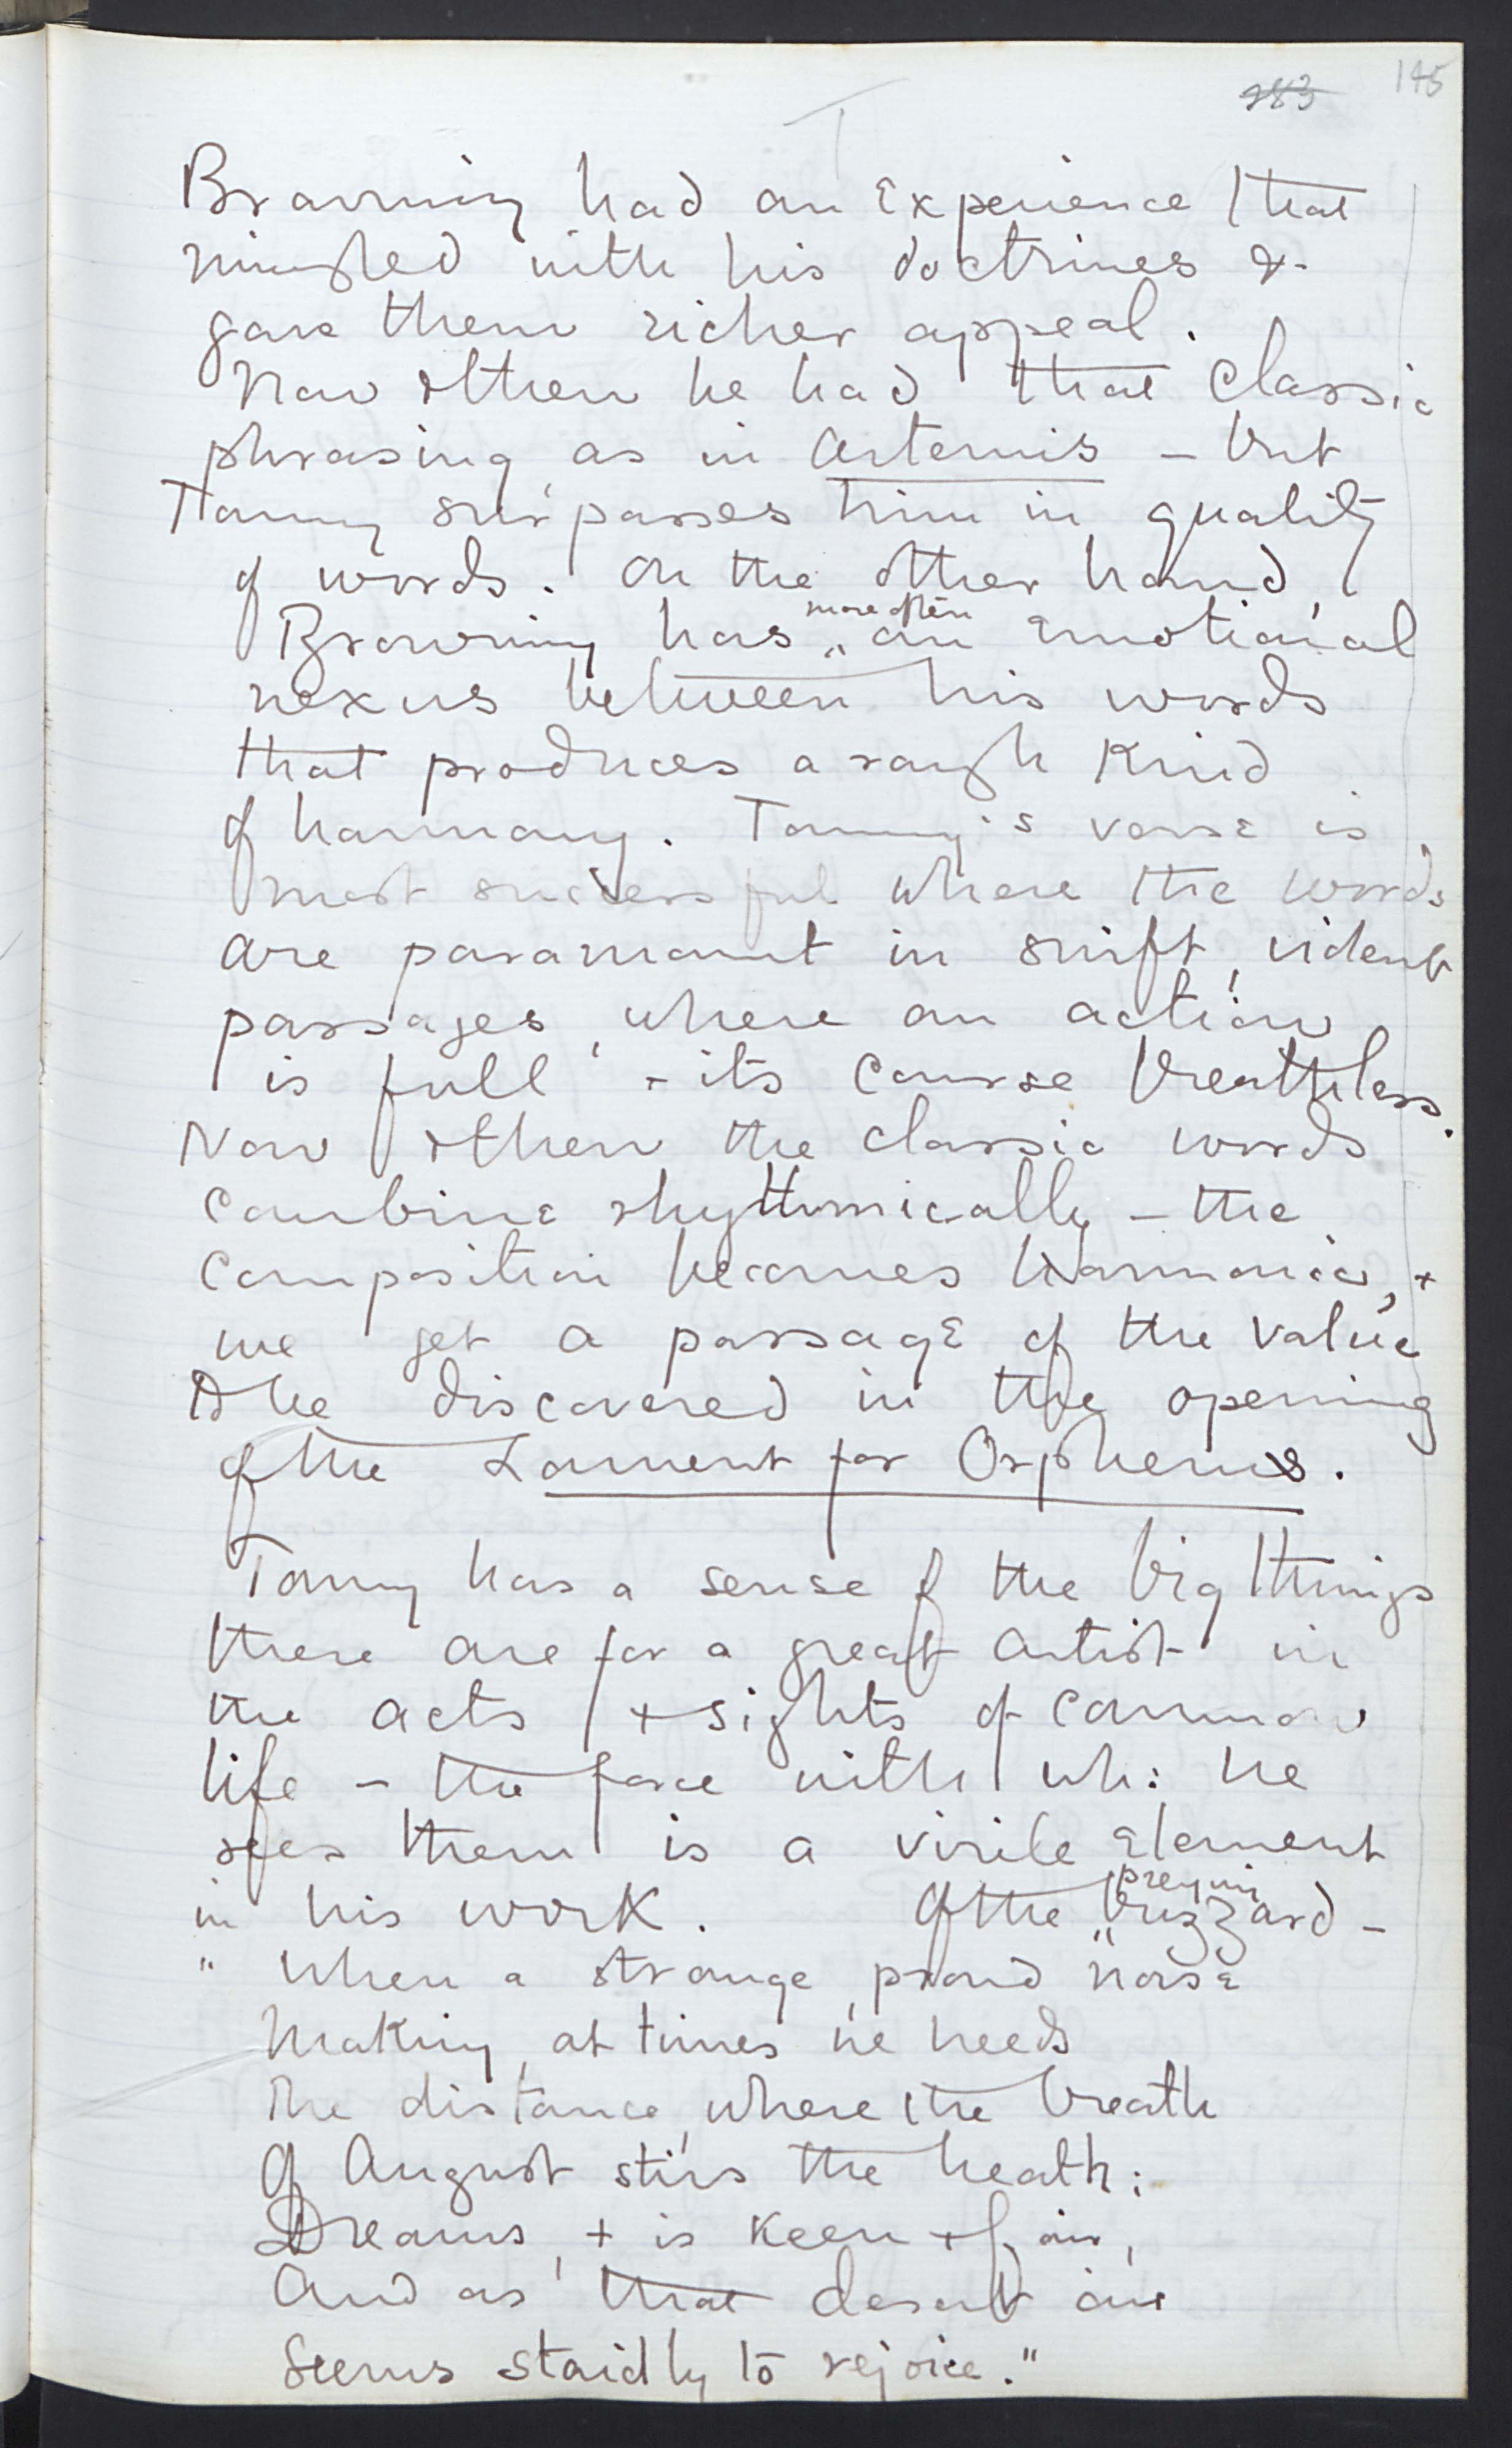 283 145
Browning had an experience that
mingled with his doctrines &
gave them richer appeal.
Now & then he had that classic
phrasing as in Artemis – but
Tommy surpasses him in quality
of words. On the other hand,
Browning has more often an emotional
nexus between his words
that produces a rough kind
of harmony. Tommy's verse is
most successful where the words
are paramount in swift, violent
passages, where an action
is full + its course breathless.
Now & then the classic words
combine rhythmically – the
composition becomes harmonic, +
we get a passage of the value
he discovered in the opening
of the Lament for Orpheus.
Tommy has a sense of the big things
there are for a great artist in
the acts + sights of common
life – the force with wh: he
sees them is a virile element
in his work. Of the preying buzzard –
" When a strange, proud noise
Making, at times he heeds
The distance, where the breath
Of August stirs the heath;
Dreams, + is keen + fair,
And as that desert air
Seems staidly to rejoice."